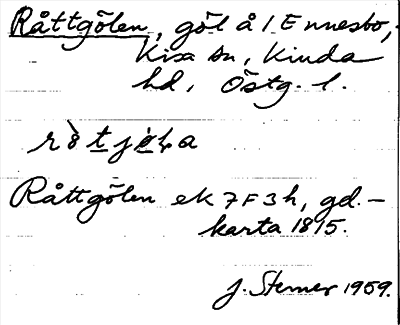 Råttgölen, göl å 1 Ennesbo,
Kisa sn, Kinda
hd, Östg. l.
Råttgölen ek 7F3h, gd.-
karta 1815.
J. Sterner 1959.